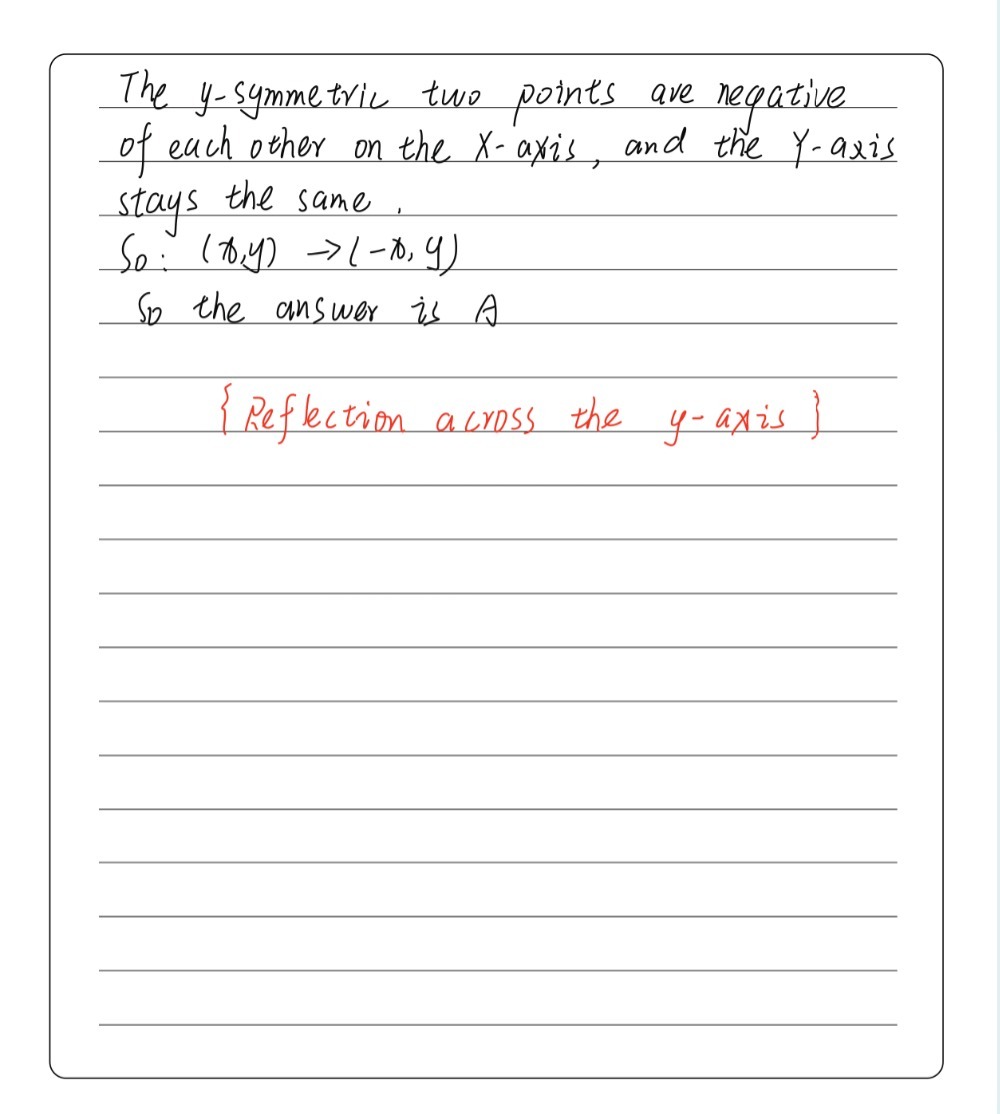 The y-symmetric two points are negative
of each other on the X-axis, and the Y-axis
stays the same.
So: (x,y) →(-x, y)
So the answer is A
{ Reflection across the y-axis }